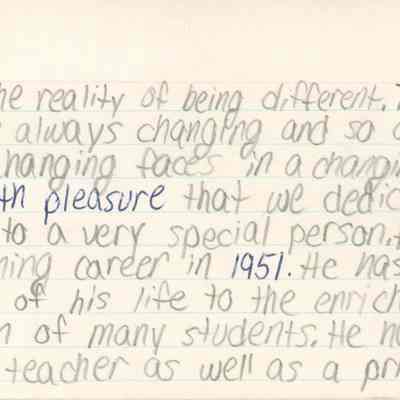 he reality of being different.
always changing and so
hanging faces in a changin
th pleasure that we dedic
to a very special person.
ning career in 1951. He has
of his life to the enrich
n of many students. He
teacher as well as a pri